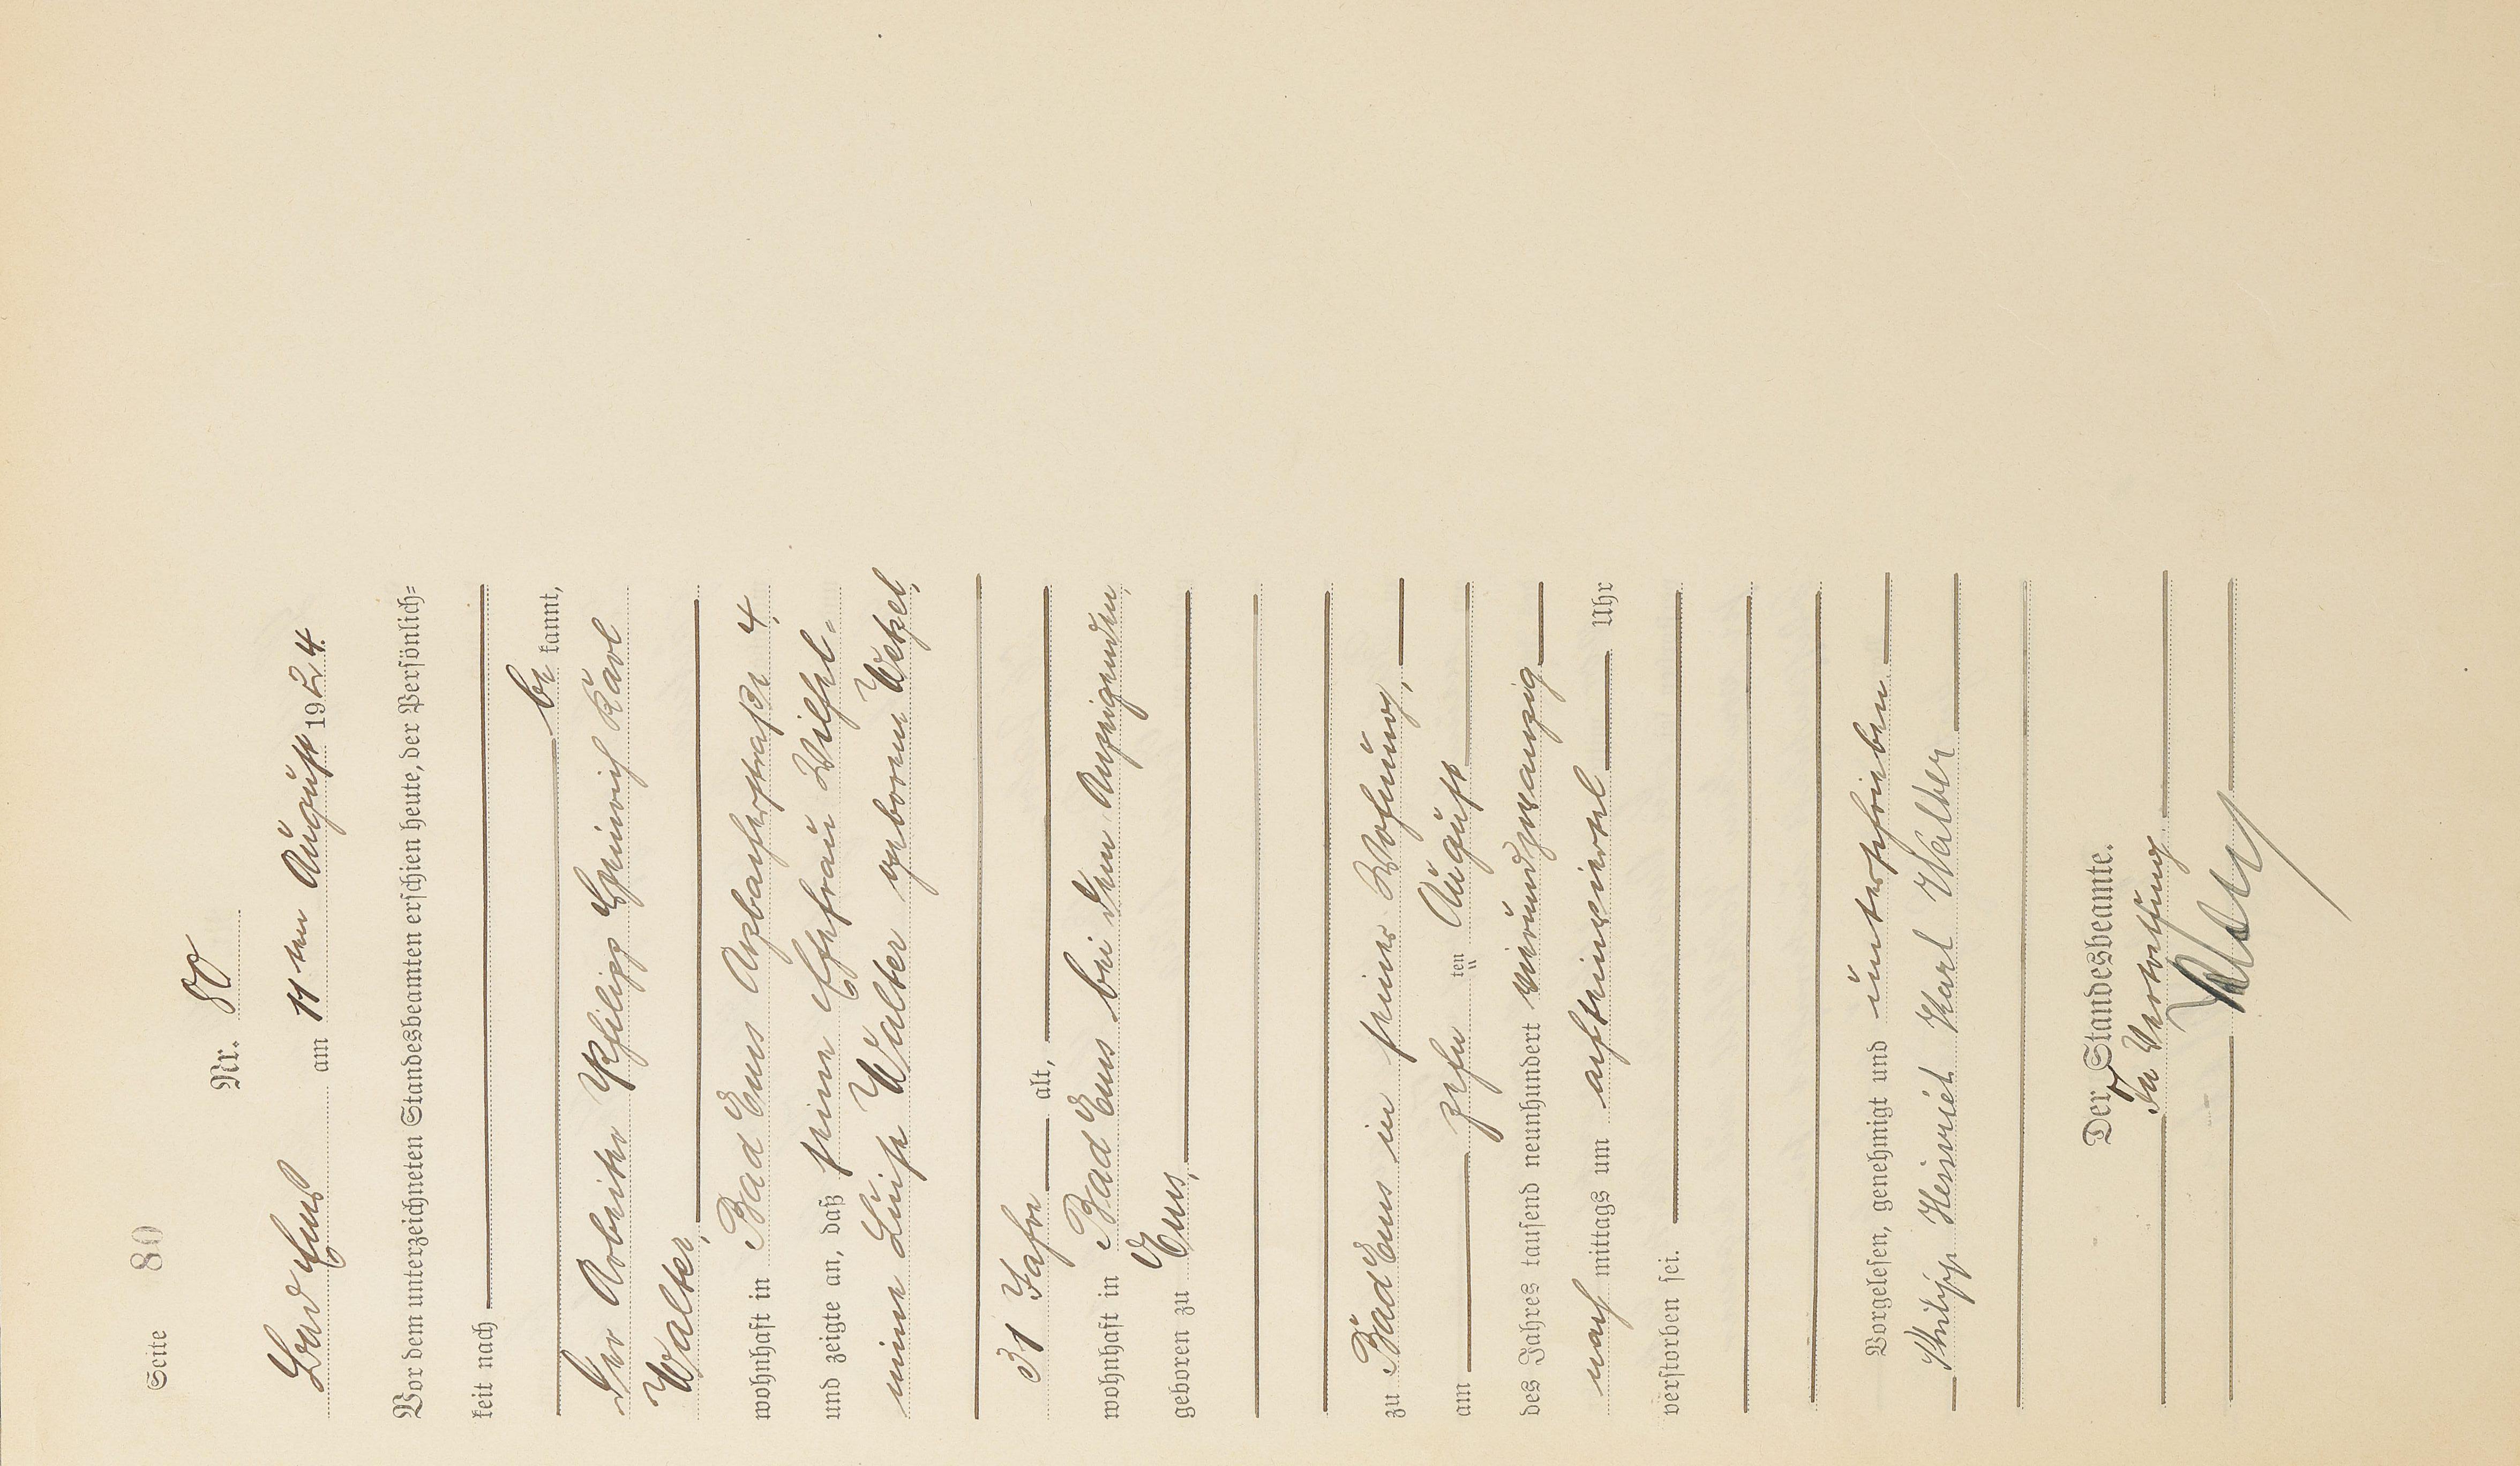 Seite 80
Nr. 80
Bad Ems am 11 ten August 1924.
Vor dem unterzeichneten Standesbeamten erschien heute, der Persönlich-
keit nach
be kannt,
Der Arbeiter Philipp Heinrich Karl
Walter,
wohnhaft in Bad Ems Arzbacherstraße 4,
und zeigte an, daß seine Ehefrau Wilhel-
mine Luise Walter geborene Wetzel,
31 Jahre alt,
wohnhaft in Bad Ems bei dem Anzeigenden,
geboren zu Ems,
zu Bad Ems in seiner Wohnung,
am zehn ten August
des Jahres tausend neunhundert vierundzwanzig
nach mittags um achteinviertel Uhr
verstorben sei.
Vorgelesen, genehmigt und unterschrieben.
Philipp Heinrich Karl Walter
Der Standesbeamte.
In Vertretung